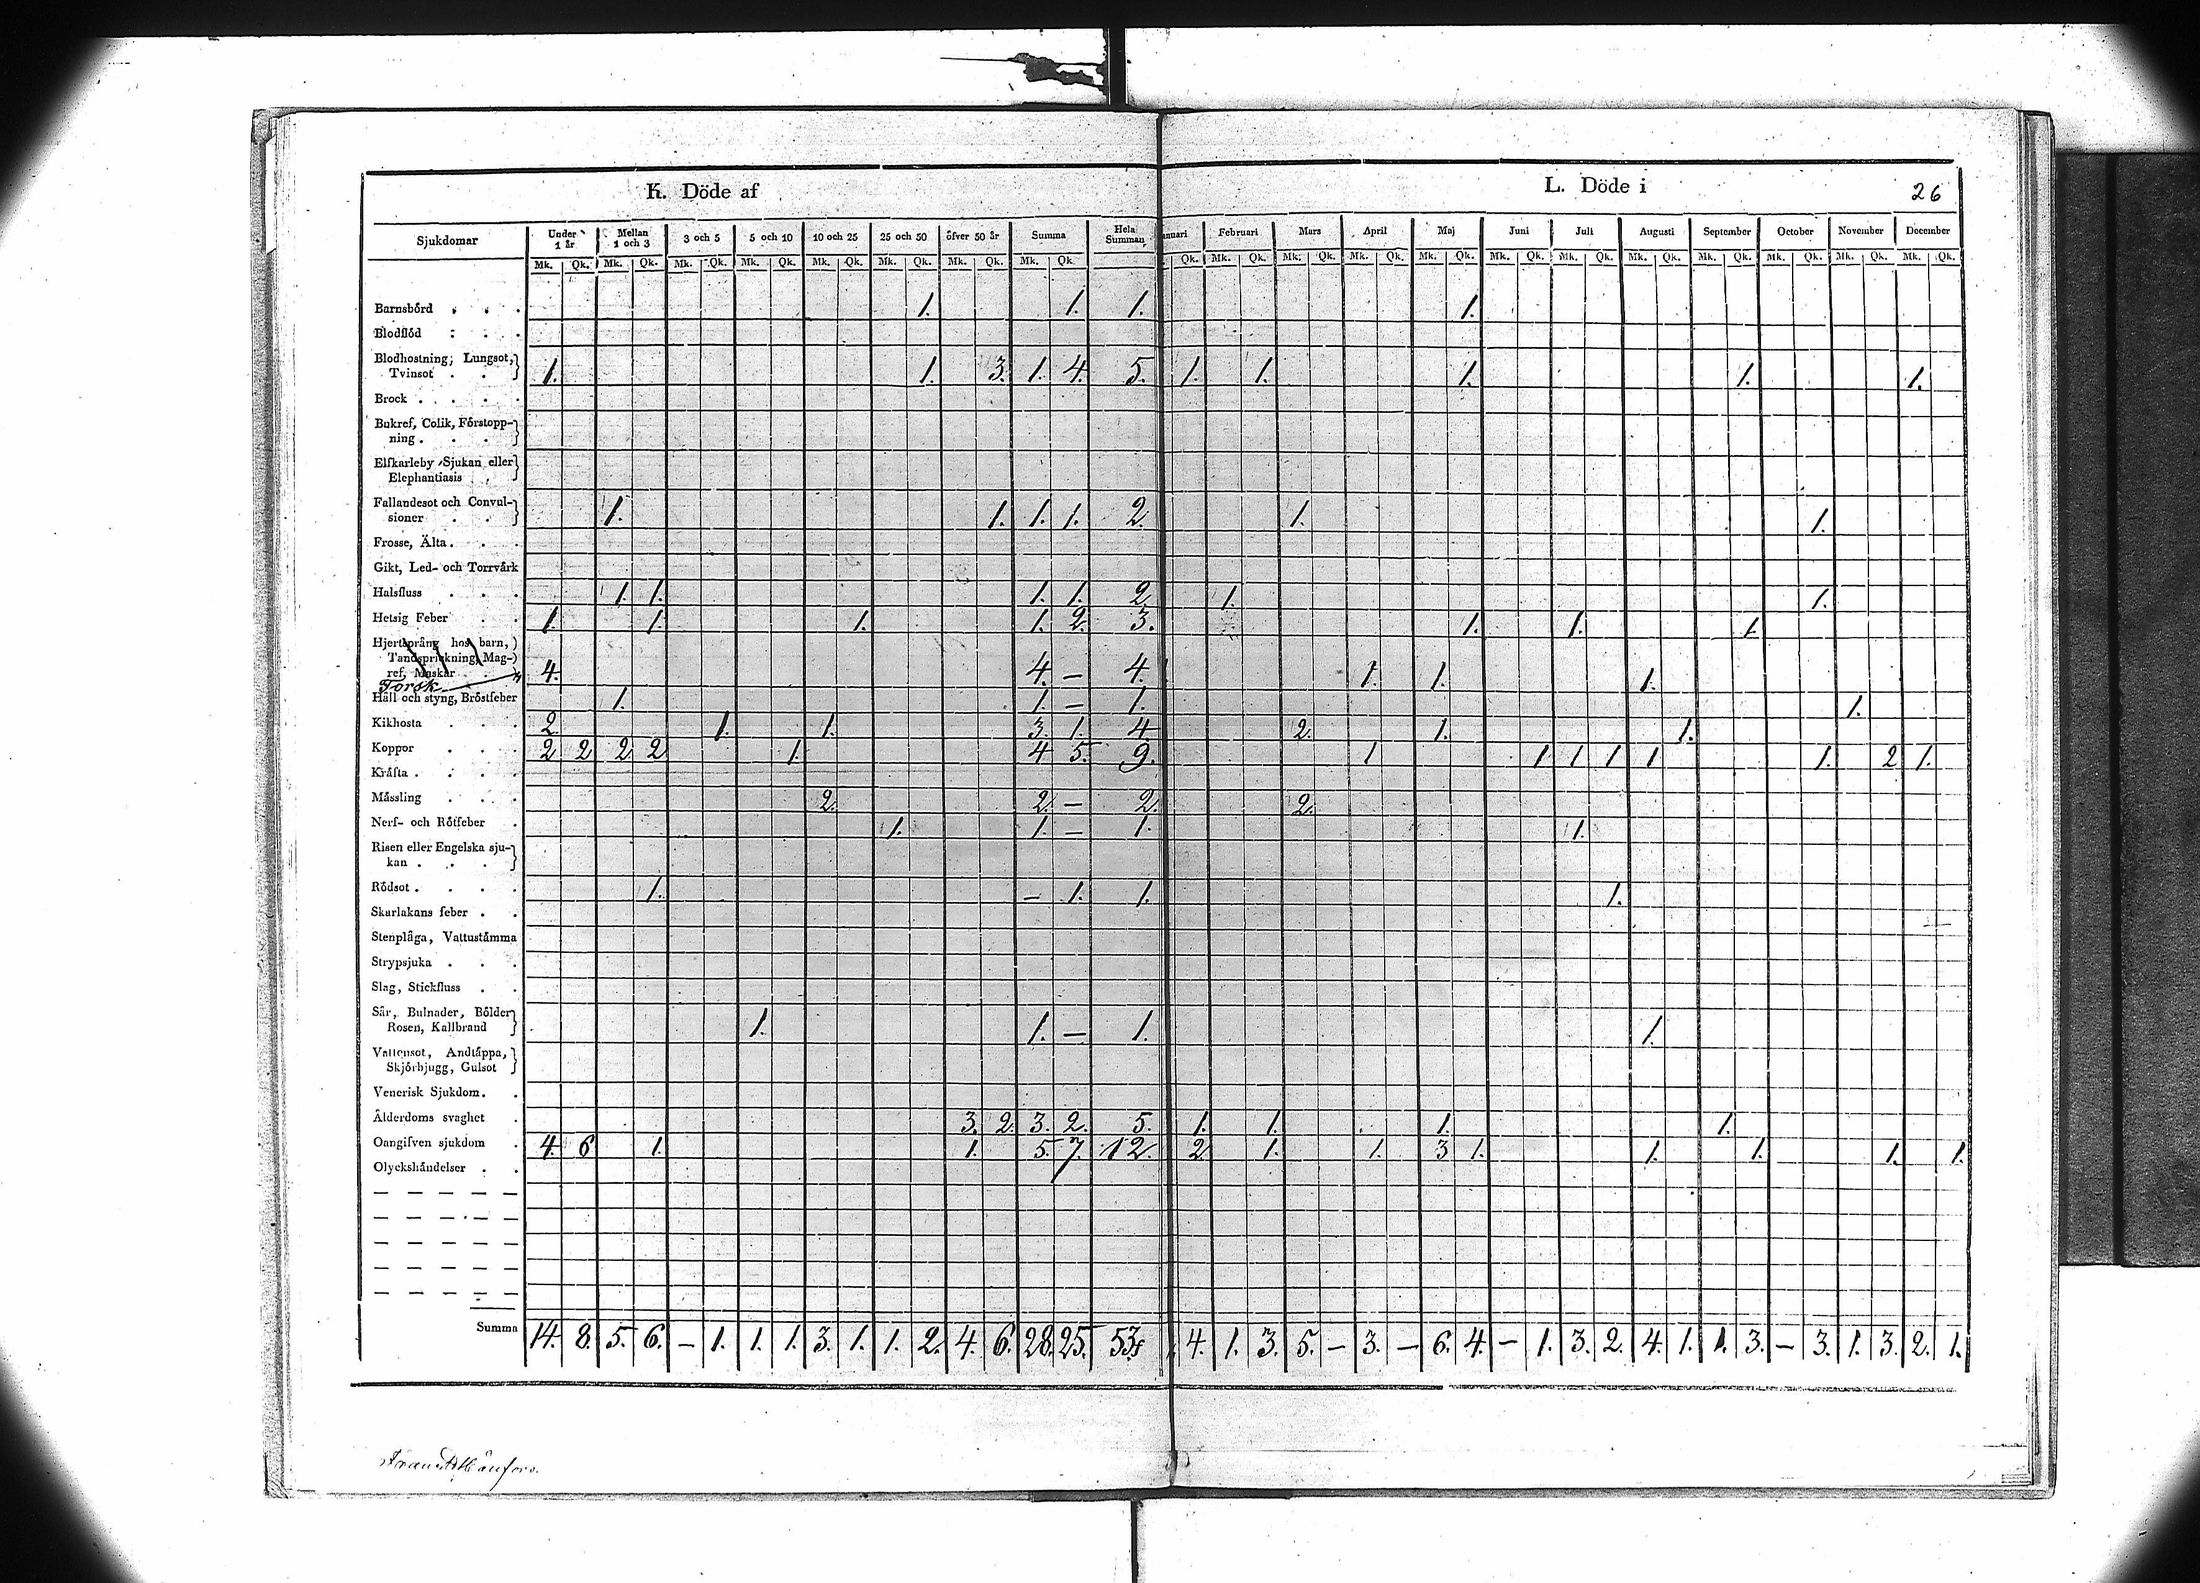 K. Döde af L. Döde i 26
Sjukdomar Under 1 år Mellan 1 och 3 3 och 5 5 och 10 10 och 25 25 och 50 öfver 50 år Summa Hela Summan anuari Februari Mars April Maj Juni Juli Augusti September October November December
Mk. Qk. Mk. Qk. Mk. Qk. Mk. Qk. Mk. Qk. Mk. Qk. Mk. Qk. Mk. Qk. Qk. Mk. Qk. Mk. Qk. Mk. Qk. Mk. Qk. Mk. Qk. Mk. Qk. Mk. Qk. Mk. Qk. Mk. Qk. Mk. Qk. Mk. Qk.
Barnsbörd . . . 1. 1. 1. 1.
Blodflöd . . .
Blodhostning, Lungsot,
Tvinsot . . 1. 1. 3. 1. 4. 5. 1. 1. 1. 1. 1.
Brock . . . .
Bukref, Colik, Förstopp-
ning . . .
Elfkarleby Sjukan eller
Elephantiasis
Fallandesot och Convul-
sioner . . 1. 1. 1. 1. 2 1. 1.
Frosse, Älta . . .
Gikt, Led- och Torrvärk
Halsfluss . . . 1. 1. 1. 1. 2 1. 1.
Hetsig Feber . . 1. 1. 1. 1. 2. 3. 1. 1. 1.
Hjertsprång hos barn,
Tandsprickning, Mag-
ref, Maskar . . 4. 4. — 4. 1. 1. 1.
Torsk
Håll och styng, Bröstfeber 1. 1. — 1. 1.
Kikhosta . . . 2 1. 1. 3. 1. 4 2. 1. 1.
Koppor . . . 2 2 2 2 1. 4 5. 9. 1 1 1 1 1 1. 2 1.
Kräfta . . . .
Mässling . . . 2. 2. — 2. 2.
Nerf- och Rötfeber . 1. 1. — 1. 1.
Risen eller Engelska sju-
kan . . .
Rödsot . . . . 1. — 1. 1. 1.
Skarlakans feber . .
Stenplåga, Vattustämma
Strypsjuka . . .
Slag, Stickfluss . .
Sår, Bulnader, Bölder
Rosen, Kallbrand 1. 1. — 1. 1.
Vattensot, Andtäppa,
Skjörbjugg, Gulsot
Venerisk Sjukdom . .
Ålderdoms svaghet . 3. 2. 3. 2. 5. 1. 1. 1. 1.
Oangifven sjukdom . 4. 6 1. 1. 5. 7. 12. 2 1. 1. 3 1. 1. 1. 1. 1.
Olyckshändelser . .
Summa 14. 8. 5. 6. — 1. 1. 1. 3. 1. 1. 2. 4. 6. 28. 25. 53. 4. 1. 3. 5. — 3. — 6. 4. — 1. 3. 2. 4. 1. 1. 3. — 3. 1. 3. 2. 1.